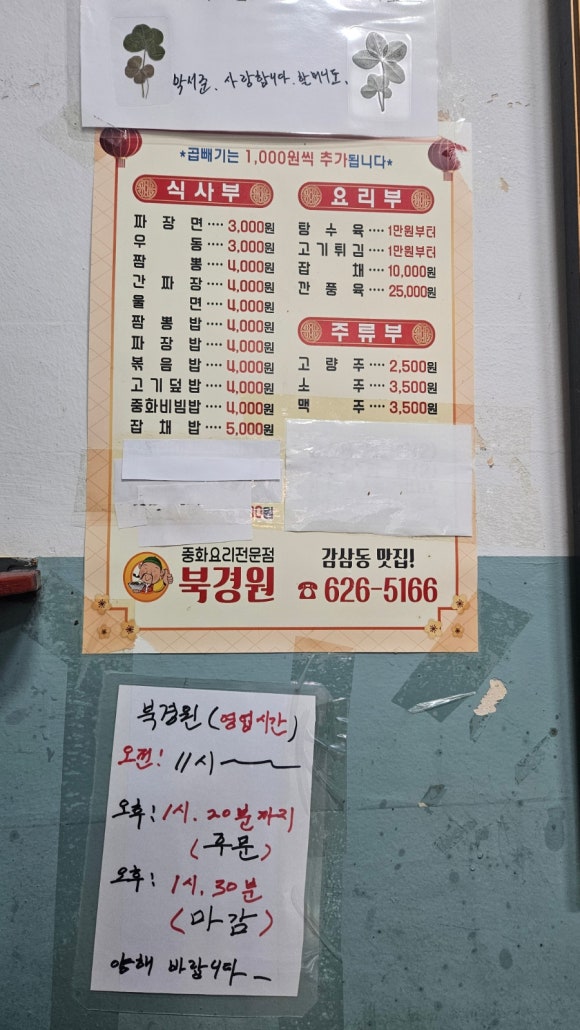 박서준. 사랑합니다. 할머니도.
★곱빼기는 1,000원씩 추가됩니다★
식사부
짜장면···· 3,000원
우동···· 3,000원
짬뽕···· 4,000원
간짜장···· 4,000원
울면···· 4,000원
짬뽕밥···· 4,000원
짜장밥···· 4,000원
볶음밥···· 4,000원
고기덮밥···· 4,000원
중화비빔밥···· 4,000원
잡채밥···· 5,000원
요리부
탕수육···· 1만원부터
고기튀김···· 1만원부터
잡채···· 10,000원
깐풍육···· 25,000원
주류부
고량주···· 2,500원
소주···· 3,500원
맥주···· 3,500원
중화요리전문점
북경원
감삼동 맛집!
☎ 626-5166
북경원 (영업시간)
오전! 11시 ~
오후: 1시. 20분까지
(주문)
오후: 1시. 30분
(마감)
양해 바랍니다_